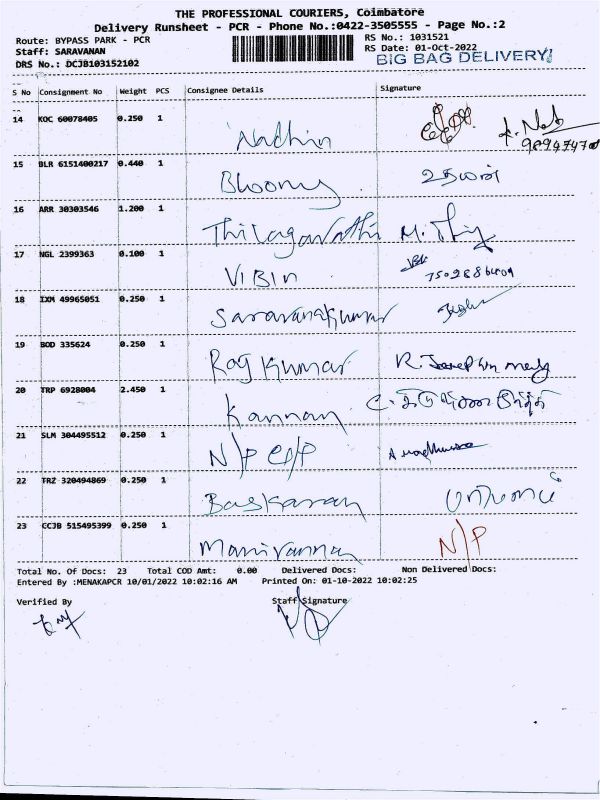 THE PROFESSIONAL COURIERS, Coimbatore
Delivery Runsheet - PCR - Phone No.:0422-3505555 - Page No.:2
Route: BYPASS PARK - PCR
RS No.: 1031521
Staff: SARAVANAN
RS Date: 01-Oct-2022
DRS No.: DCJB103152102
BIG BAG DELIVERY!
S No Consignment No Weight PCS Consignee Details Signature
14 KOC 60078405 0.250 1 Nadhin
15 BLR 6151400217 0.440 1 உதயன்
16 ARR 30303546 1.200 1 Thilagavathi M.
17 NGL 2399363 0.100 1 VIBIn
18 IXM 49965051 0.250 1 Saravanakumar
19 BOD 335624 0.250 1 Raj Kumar R.
20 TRP 6928004 2.450 1 Kannan
21 SLM 304495512 0.250 1 N/P
22 TRZ 320494869 0.250 1 Baskaran
23 CCJB 515495399 0.250 1 Manivannan N/P
Total No. Of Docs: 23 Total COD Amt: 0.00 Delivered Docs: Non Delivered Docs:
Entered By :MENAKAPCR 10/01/2022 10:02:16 AM Printed On: 01-10-2022 10:02:25
Verified By Staff Signature